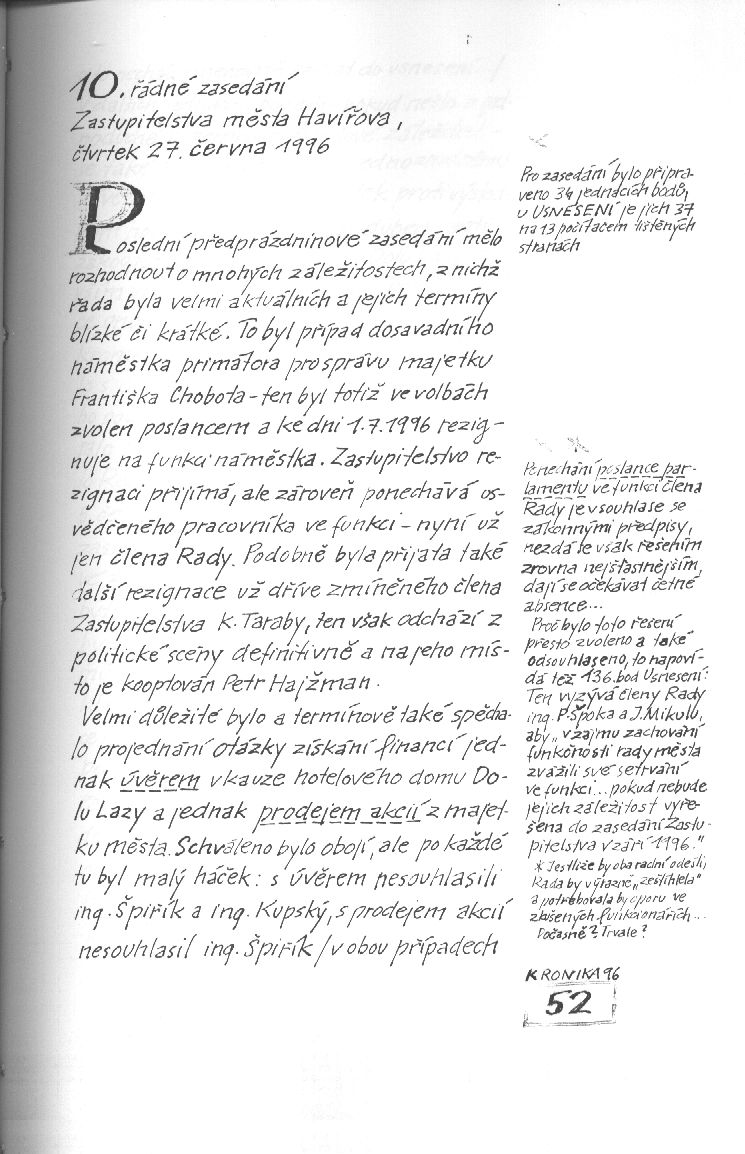 10. řádné zasedání
Zastupitelstva města Havířova,
čtvrtek 27. června 1996
Poslední předprázdninové zasedání mělo
rozhodnout o mnohých záležitostech, z nichž
řada byla velmi aktuálních a jejich termíny
blízké či krátké. To byl případ dosavadního
náměstka primátora pro správu majetku
Františka Chobota - ten byl totiž ve volbách
zvolen poslancem a ke dni 1.7.1996 rezig-
nuje na funkci náměstka. Zastupitelstvo re-
zignaci přijímá, ale zároveň ponechává os-
vědčeného pracovníka ve funkci - nyní už
jen člena Rady. Podobně byla přijata také
další rezignace už dříve zmíněného člena
Zastupitelstva K. Taraby, ten však odchází z
politické scény definitivně a na jeho mís-
to je kooptován Petr Hajžman.
Velmi důležité bylo a termínově také spěcha-
lo projednání otázky získání financí jed-
nak úvěrem v kauze hotelového domu Do-
lu Lazy a jednak prodejem akcií z majet-
ku města. Schváleno bylo obojí, ale po každé
tu byl malý háček: s úvěrem nesouhlasili
ing. Špiřík a ing. Kupský, s prodejem akcií
nesouhlasil ing. Špiřík /v obou případech
Pro zasedání bylo připra-
veno 34 jednacích bodů,
v USNESENÍ je jich 37
na 13 počítačem tištěných
stranách
Ponechání poslance par-
lamentu ve funkci člena
Rady je v souhlase se
zákonnými předpisy,
nezdá se však řešením
zrovna nejšťastnějším,
dají se očekávat četné
absence...
Proč bylo toto řešení
přesto zvoleno a také
odsouhlaseno, to napoví-
dá též 136. bod Usnesení:
Ten vyzývá členy Rady
ing. P. Špoka a J. Mikulu,
aby „v zájmu zachování
funkčnosti rady města
zvážili své setrvání
ve funkci... pokud nebude
jejich záležitost vyře-
šena do zasedání Zastu-
pitelstva v září 1996."
* Jestliže by oba radní odešli,
Rada by výrazně „zeštíhlela"
a potřebovala by oporu ve
zkušených funkcionářích...
Dočasně? Trvale?
KRONIKA 96
52